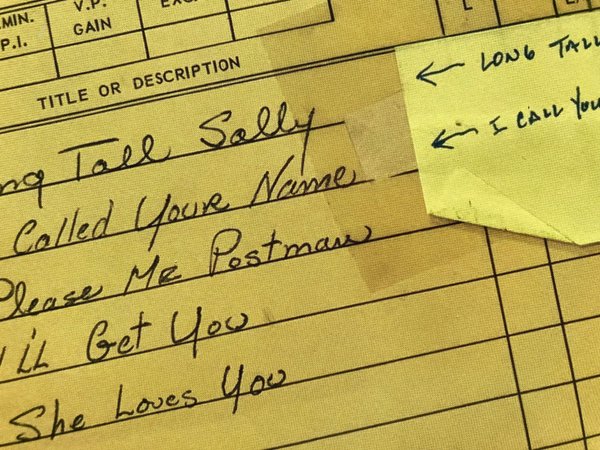 MIN.
P.I.
V.P.
GAIN
TITLE OR DESCRIPTION
ng Tall Sally
Called Your Name
Please Mr Postman
'll Get You
She Loves You
← LONG TALL
← I CALL YOU